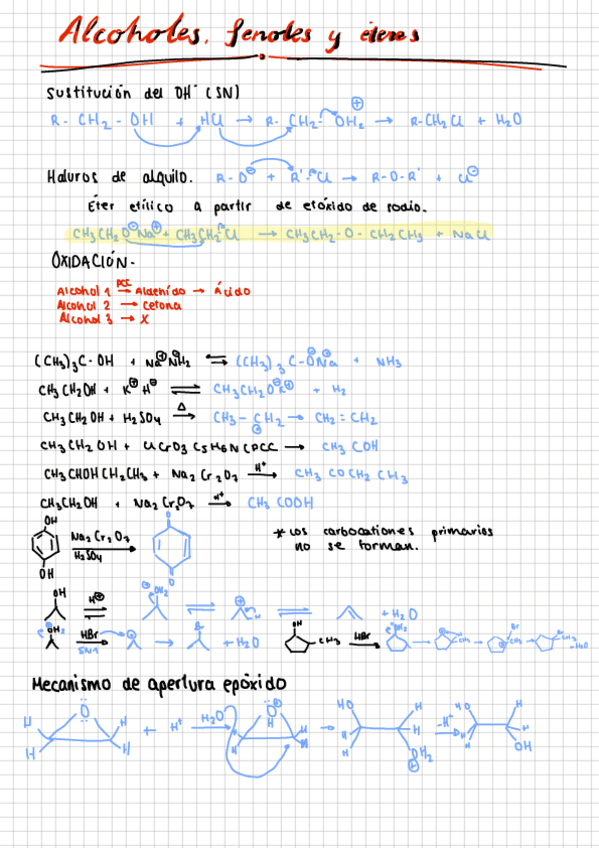 Alcoholes, fenoles y éteres
Sustitución del OH⁻ (SN)
R - CH₂ - OH + HCl → R - CH₂ - OH₂ ⊕ → R-CH₂Cl + H₂O
Haluros de alquilo. R-O⊖ + R'-Cl → R-O-R' + Cl⊖
Éter etílico a partir de etóxido de sodio.
CH₃CH₂O⊖Na⊕ + CH₃CH₂Cl → CH₃CH₂-O-CH₂CH₃ + NaCl
OXIDACIÓN.
Alcohol 1 PCC → Aldehído → ácido
Alcohol 2 → Cetona
Alcohol 3 → X
(CH₃)₃C-OH + Na⊕NH₂⊖ ⇌ (CH₃)₃C-ONa + NH₃
CH₃CH₂OH + K⊕H⊖ ⇌ CH₃CH₂O⊖K⊕ + H₂
CH₃CH₂OH + H₂SO₄ Δ → CH₃-CH₂⊕ → CH₂=CH₂
CH₃CH₂OH + ClCrO₃C₅H₆N (PCC → CH₃COH
CH₃CHOHCH₂CH₃ + Na₂Cr₂O₇ H⁺ → CH₃COCH₂CH₃
CH₃CH₂OH + Na₂Cr₂O₇ H⁺ → CH₃COOH
OH OH Na₂Cr₂O₇ H₂SO₄ → O O
* Los carbocationes primarios
no se forman.
OH H⊕ ⇌ ⊕OH₂ ⇌ ⊕ H ⇌ + H₂O
OH₂ HBr SN1 → ⊕ → Br + H₂O OH CH₃ HBr → OH₂ → CH₃ → Br CH₃ → Br CH₃ -H₂O
Mecanismo de apertura epóxido
H H O H H + H⁺ H₂O → O⊕ H H H → HO H H H OH₂ ⊕ -H⁺ → HO H H H OH